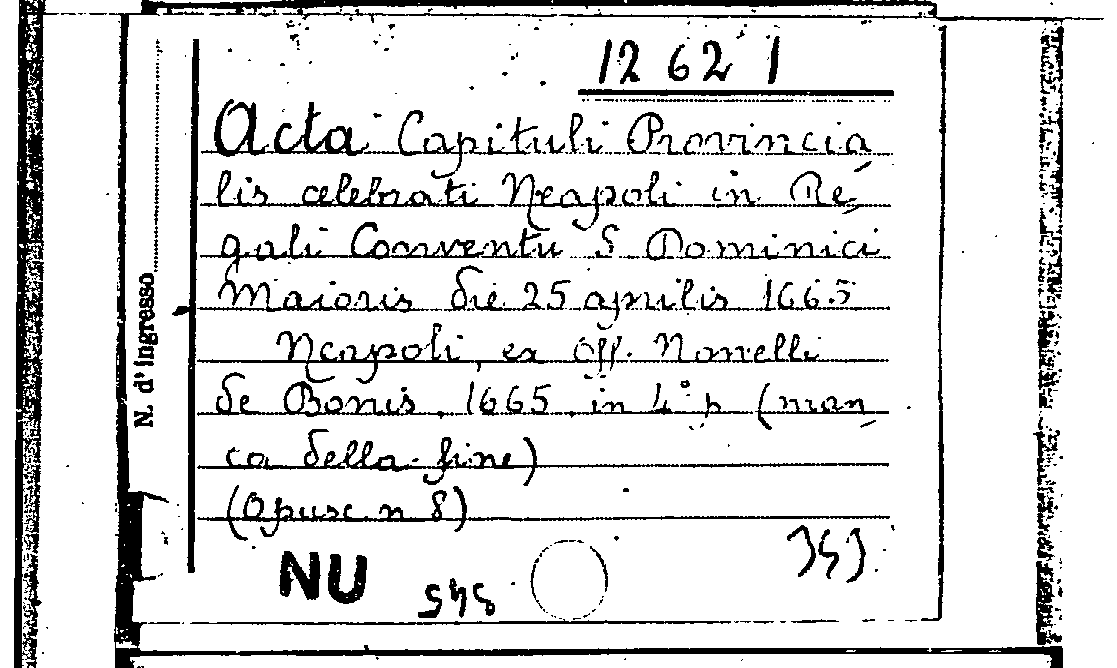 12621
Acta Capituli Provincia
lis celebrati Neapoli in Re=
gali Conventu S Dominici
Maioris die 25 aprilis 1665
Neapoli, ex Off. Novelli
de Bonis, 1665, in 4° p (man
ca della fine)
(Opusc. n 8)
N. d'ingresso
NU